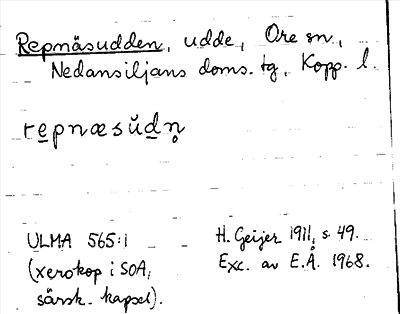 Repnäsudden, udde, Ore sn,
Nedansiljans doms. tg, Kopp. l.
re̠pnæsŭd̠n̥
ULMA 565:1
(xerokop i SOA,
särsk. kapsel).
H. Geijer 1911, s. 49.
Exc. av E.Å. 1968.